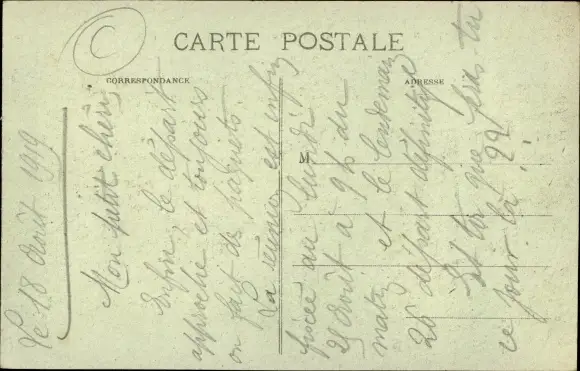 CARTE POSTALE
CORRESPONDANCE
ADRESSE
M
le 18 août 1919
Mon petit chéri,
Enfin, le départ
approche et toujours
on fait des paquets.
La réunion est enfin
fixée au lundi
25 août à 9 h du
matin et le lendemain
26 départ définitif
Et toi que feras tu
ce jour là ??